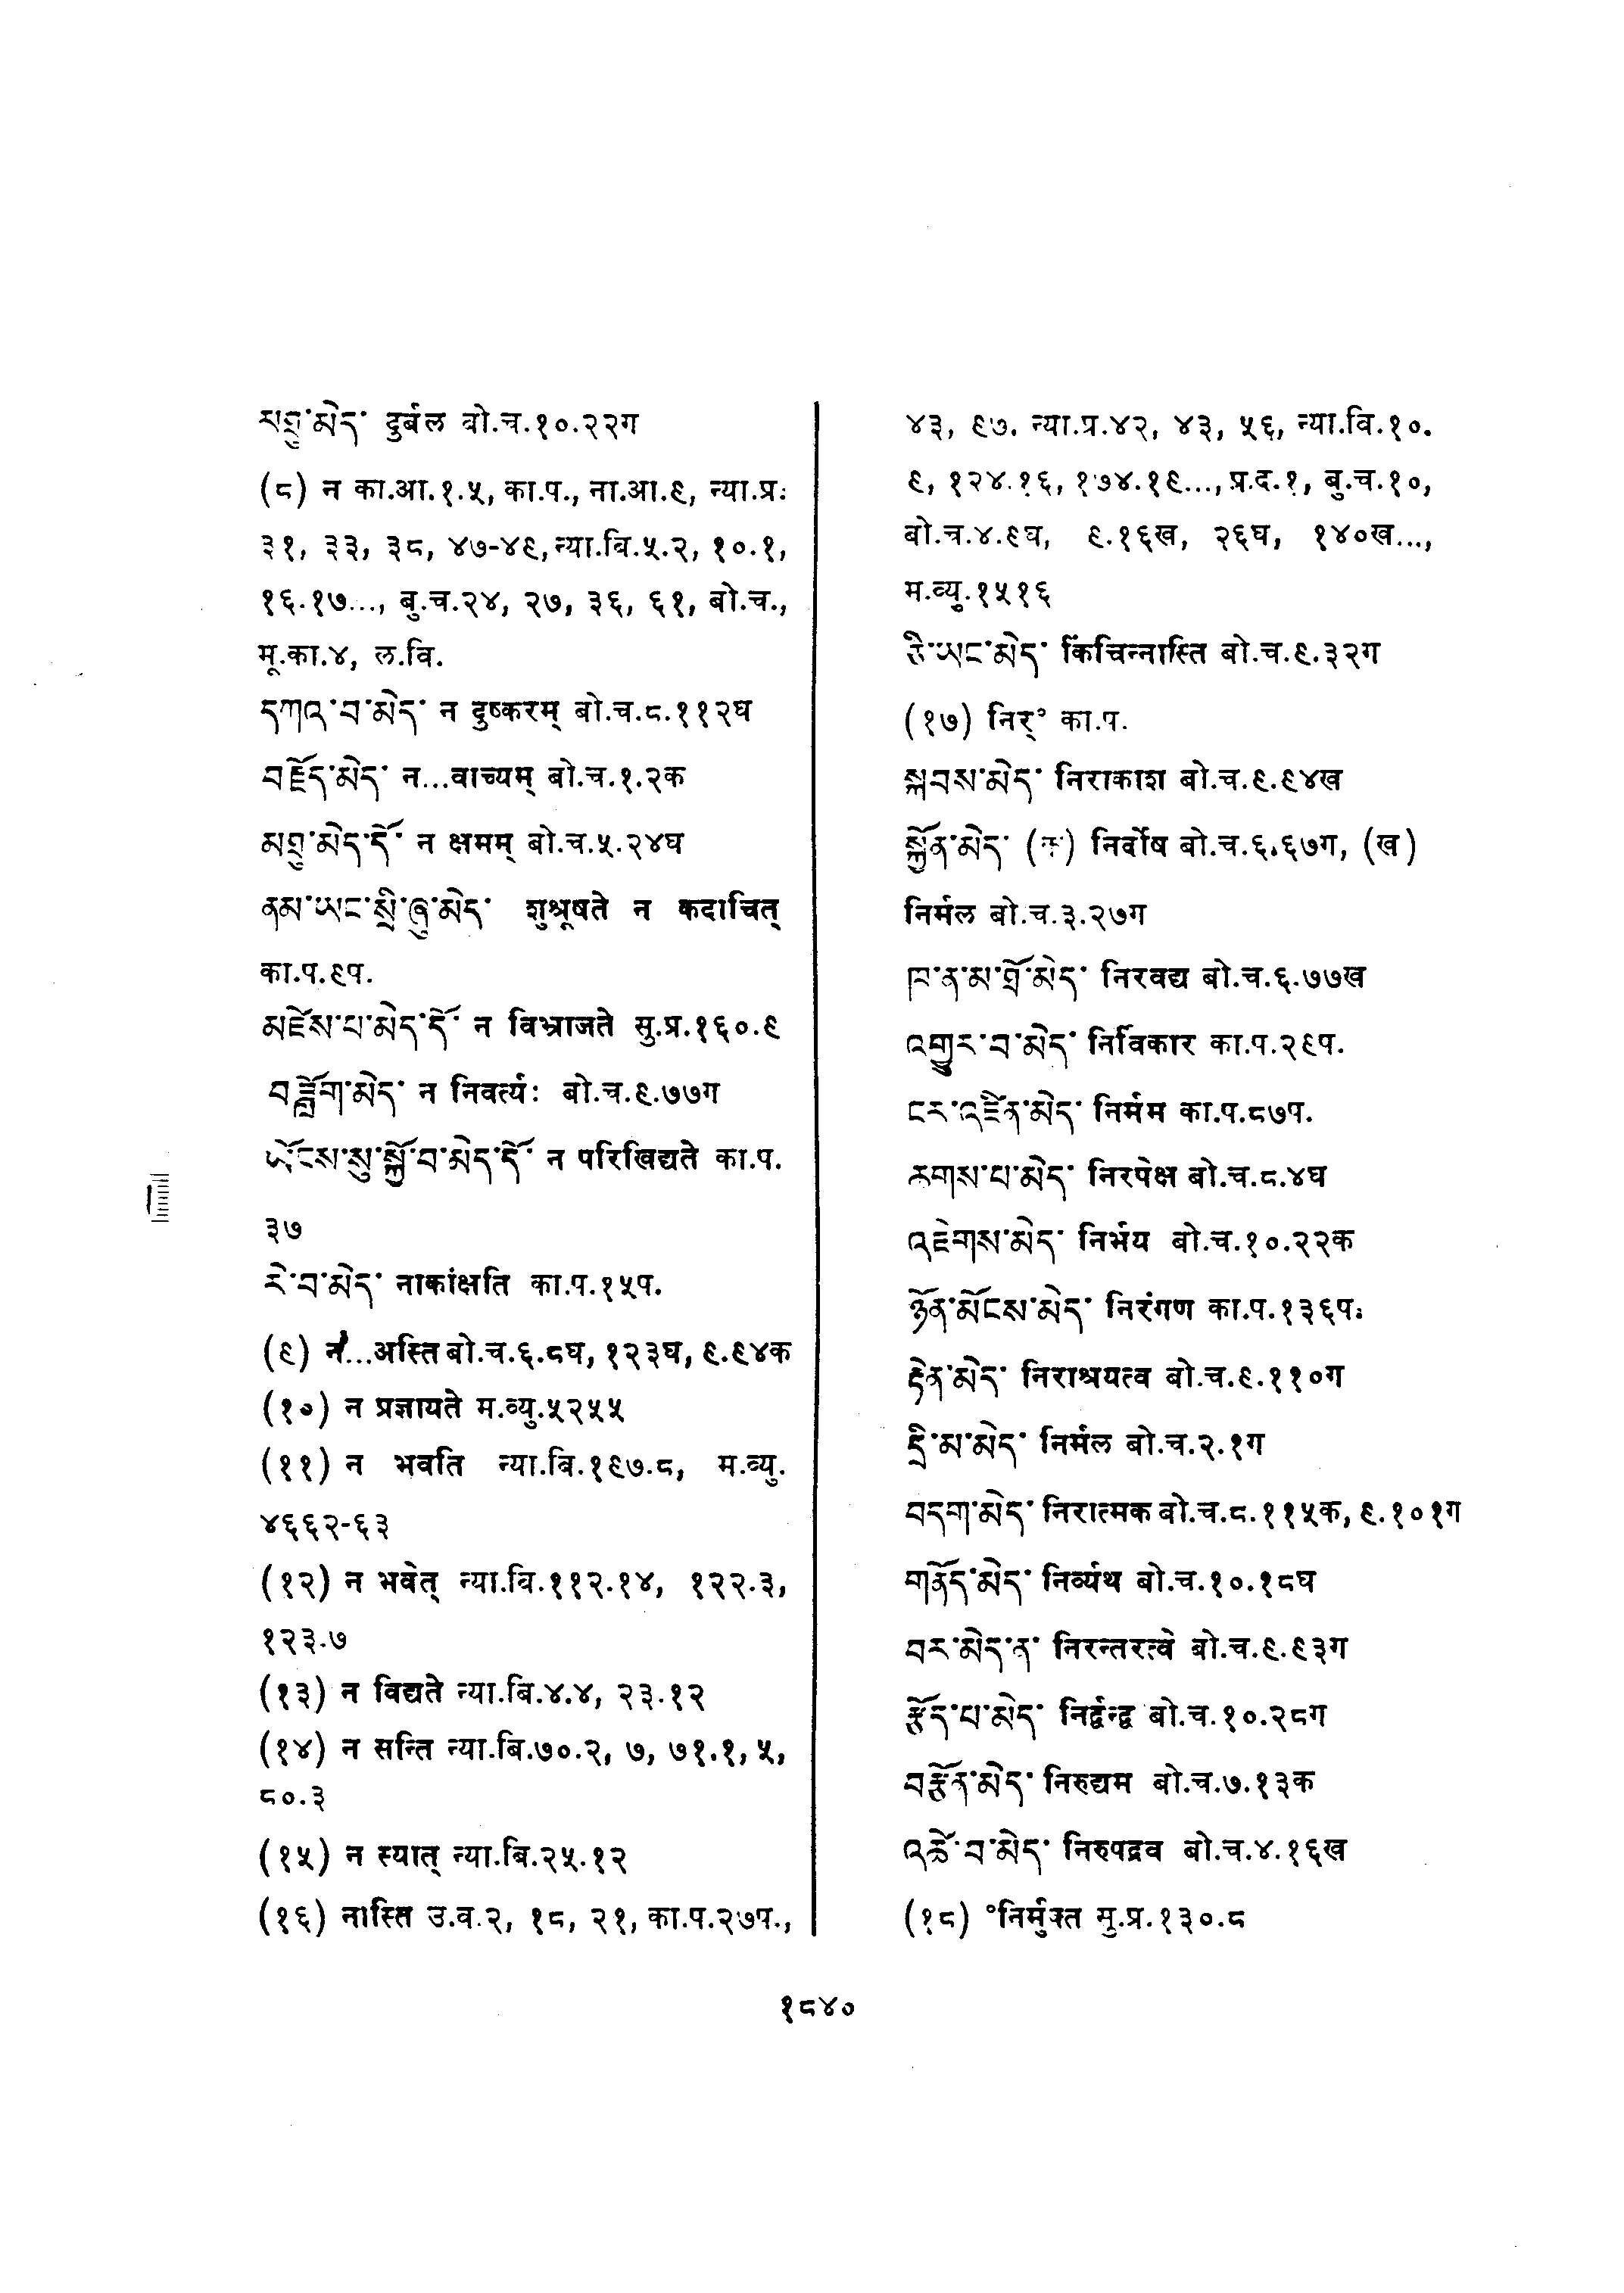 མཐུ་མེད་ दुर्बल बो.च.१०.२२ग
(८) न का.आ.१.५, का.प., ना.आ.९, न्या.प्र.
३१, ३३, ३८, ४७-४९, न्या.बि.५.२, १०.१,
१६.१७..., बु.च.२४, २७, ३६, ६१, बो.च.,
मू.का.४, ल.वि.
དཀའ་བ་མེད་ न दुष्करम् बो.च.८.११२घ
བརྗོད་མེད་ न...वाच्यम् बो.च.१.२क
མཐུ་མེད་དོ་ न क्षमम् बो.च.५.२४घ
ནམ་ཡང་སྲི་ཞུ་མེད་ शुश्रूषते न कदाचित्
का.प.९प.
མཛེས་པ་མེད་དོ་ न विभ्राजते सु.प्र.१६०.९
བཟློག་མེད་ न निवर्त्यः बो.च.९.७७ग
ཡོངས་སུ་སྐྱོ་བ་མེད་དོ་ न परिखिद्यते का.प.
३७
རེ་བ་མེད་ नाकांक्षति का.प.१५प.
(९) न...अस्ति बो.च.६.८घ, १२३घ, ९.९४क
(१०) न प्रज्ञायते म.व्यु.५२५५
(११) न भवति न्या.बि.१९७.८, म.व्यु.
४६६२-६३
(१२) न भवेत् न्या.बि.११२.१४, १२२.३,
१२३.७
(१३) न विद्यते न्या.बि.४.४, २३.१२
(१४) न सन्ति न्या.बि.७०.२, ७, ७१.१, ५,
८०.३
(१५) न स्यात् न्या.बि.२५.१२
(१६) नास्ति उ.व.२, १८, २१, का.प.२७प.,
४३, ९७, न्या.प्र.४२, ४३, ५६, न्या.वि.१०.
९, १२४.१६, १७४.१९..., प्र.द.१, बु.च.१०,
बो.च.४.९घ, ९.१६ख, २६घ, १४०ख...,
म.व्यु.१५१६
ཅི་ཡང་མེད་ किंचिन्नास्ति बो.च.९.३२ग
(१७) निर्° का.प.
སྐབས་མེད་ निराकाश बो.च.९.९४ख
སྐྱོན་མེད་ (क) निर्दोष बो.च.६.६७ग, (ख)
निर्मल बो.च.३.२७ग
ཁ་ན་མ་ཐོ་མེད་ निरवद्य बो.च.६.७७ख
འགྱུར་བ་མེད་ निर्विकार का.प.२९प.
ངར་འཛིན་མེད་ निर्मम का.प.८७प.
ཆགས་པ་མེད་ निरपेक्ष बो.च.८.४घ
འཇིགས་མེད་ निर्भय बो.च.१०.२२क
ཉོན་མོངས་མེད་ निरंगण का.प.१३६प.
རྟེན་མེད་ निराश्रयत्व बो.च.९.११०ग
དྲི་མ་མེད་ निर्मल बो.च.२.१ग
བདག་མེད་ निरात्मक बो.च.८.११५क, ९.१०१ग
གནོད་མེད་ निर्व्यथ बो.च.१०.१८घ
བར་མེད་ན་ निरन्तरत्वे बो.च.९.९३ग
རྩོད་པ་མེད་ निर्द्वन्द्व बो.च.१०.२८ग
བརྩོན་མེད་ निरुद्यम बो.च.७.१३क
འཚེ་བ་མེད་ निरुपद्रव बो.च.४.१६ख
(१८) °निर्मुक्त सु.प्र.१३०.८
१८४०